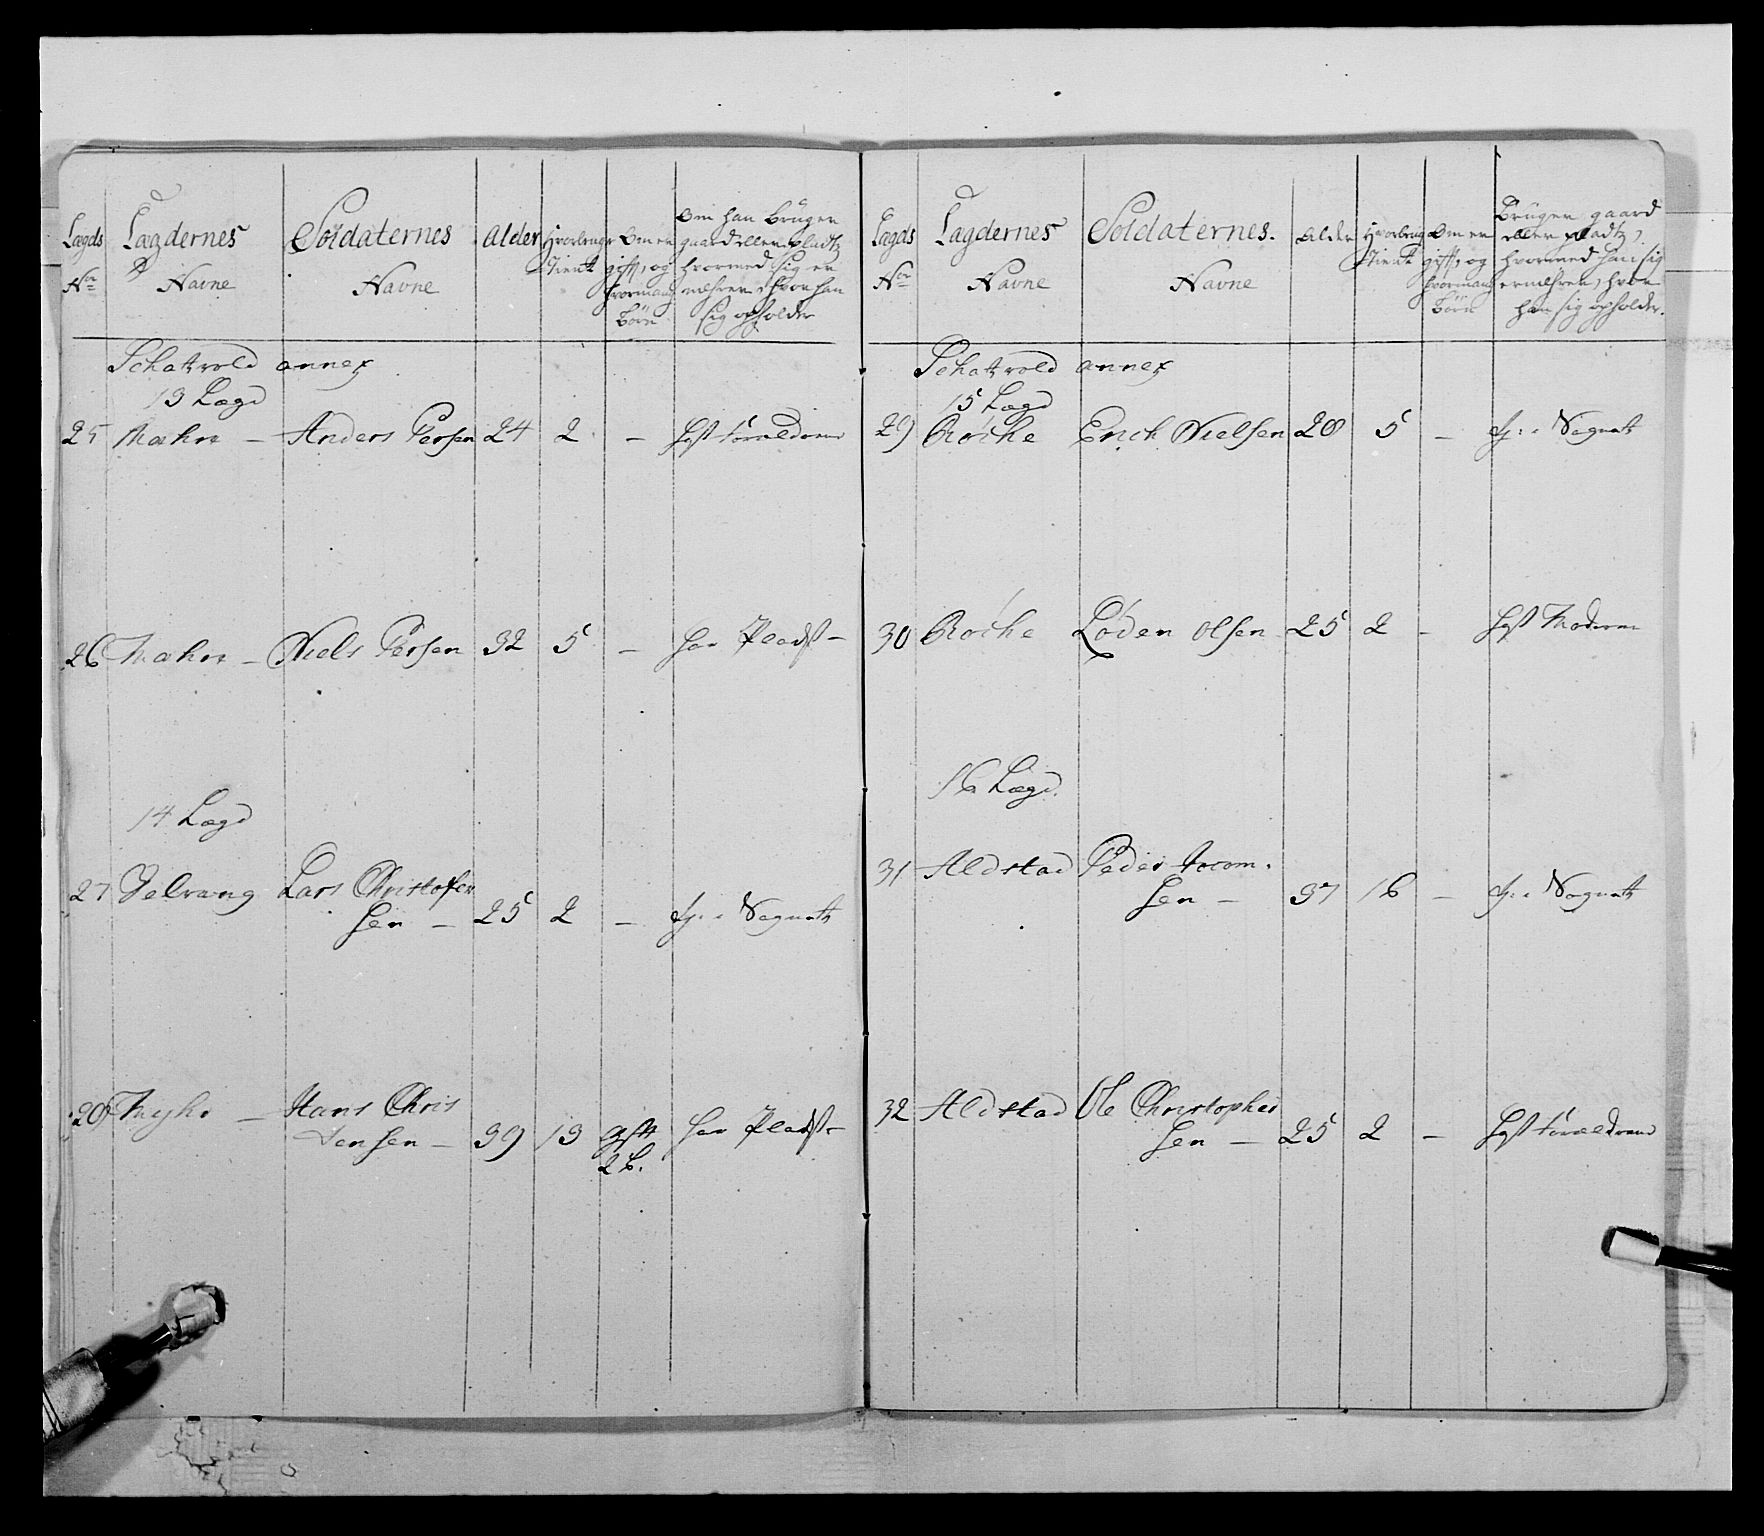 Lægds
No
Lægdernes
Navne
Soldaternes
Navne
Alder
Hvorlenge
tient
Om er
gift, og
hvormang
börn
Om han bruger
gaard eller pladtz
hvormed sig er
næhrer, hvor han
sig opholder
Schatvold annex
13 Lægd
25 Mæhre – Anders Persen 24 2 – hos forældrene
26 Mæhre – Niels Persen 32 5 – har Pladst –
14 Lægd
27 Lars Christofer
sen – 25 2 – tj: i Sognet
28 Myhr – Hans Chris
tensen – 39 13 gift har Pladst –
2 b.
Lægds
No
Lægdernes
Navne
Soldaternes.
Navne
Alder
Hvorleng
tient
Om er
gift, og
hvormang
börn
Bruger gaard
eller pladtz,
hvormed han sig
ernæhrer, hvor
han sig opholder.
Schatvold annex
15 Lægd
29 Röcke Erich Nielsen 28 5 – tj: i Sognet
30 Röcke Loden Olsen 25 2 – hos Moderen
16 Lægd.
31 Aldstad Peder
sen – 37 16 – tj: i Sognet
32 Aldstad Ole Christopher
sen – 25 2 – hos forældrene